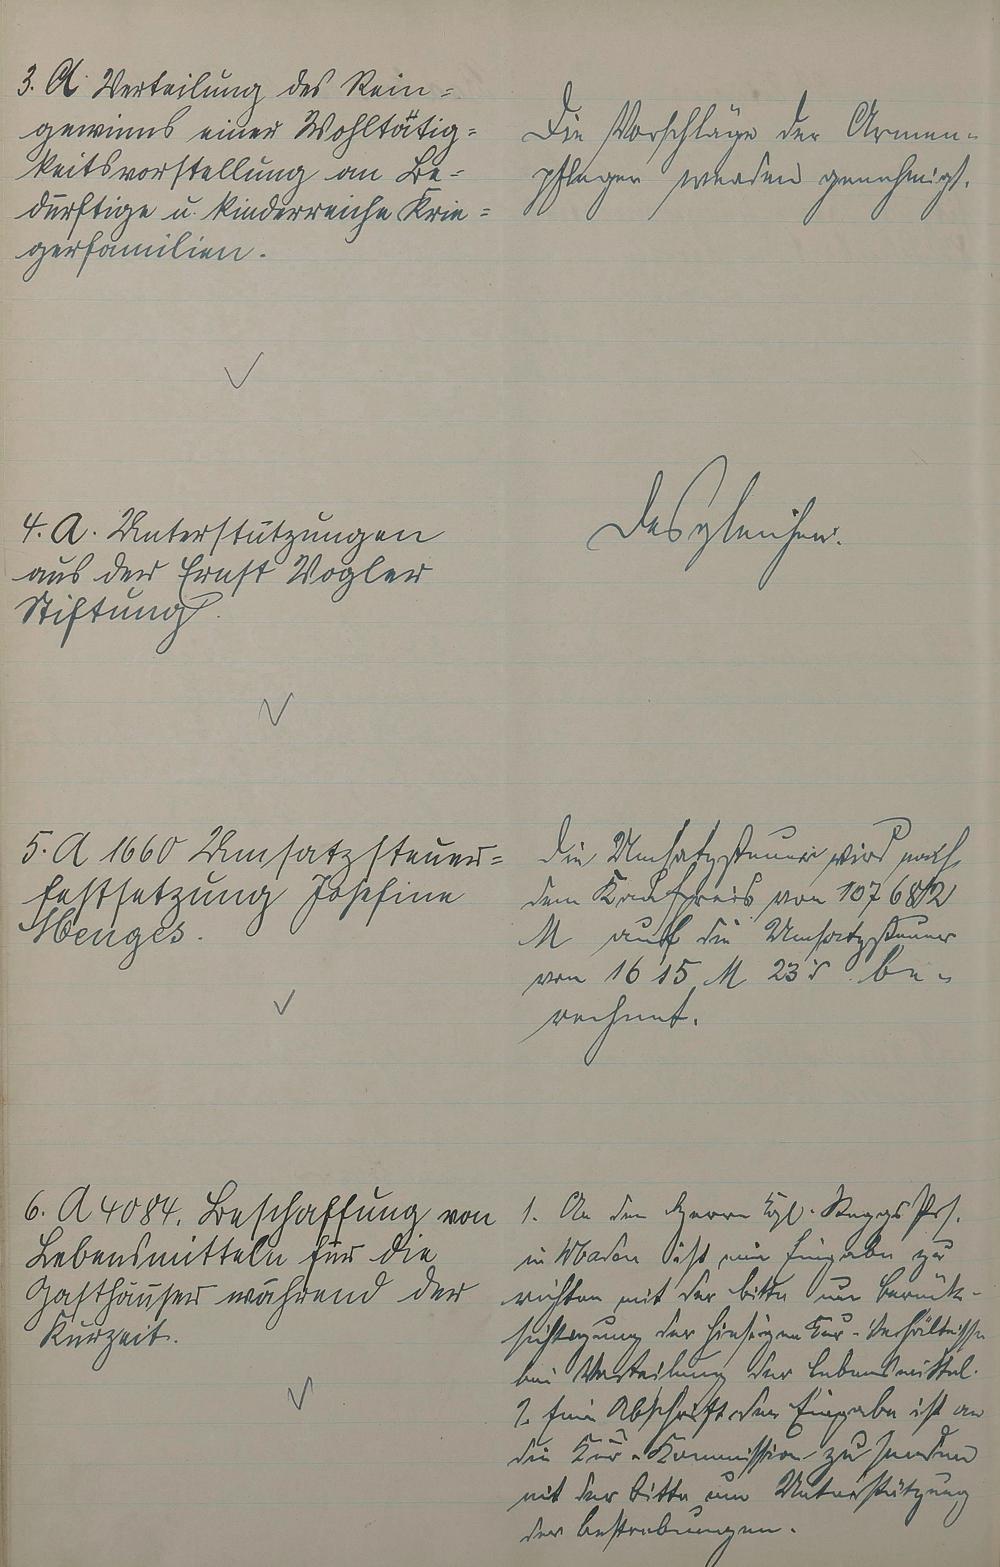 3. A. Verteilung des Rein=
gewinns einer Wohltätig=
keitsvorstellung an Be=
dürftige u. kinderreiche Krie=
gerfamilien.
Die Vorschläge der Armen-
pfleger werden genehmigt.
4. A. Unterstützungen
aus der Ernst Vogler
Stiftung.
Desgleichen.
5. A 1660 Umsatzsteuer=
festsetzung Josefine
Menges.
Die Umsatzsteuer wird nach
dem Kaufpreis von 107 682
M auf die Umsatzsteuer
von 1615 M 23 be-
rechnet.
6. A 4084. Beschaffung von
Lebensmitteln für die
Gasthäuser während der
Kurzeit.
1. An den Herrn Kgl. Reggs Prs.
in Wbaden ist eine Eingabe zu
richten mit der bitte um berück-
sichtigung der hiesigen Kur-Verhältnisse
bei Verteilung der Lebensmittel.
2. Eine Abschrift der Eingabe ist an
die Kur-Kommission zu senden
mit der bitte um Unterstützung
der bestrebungen.